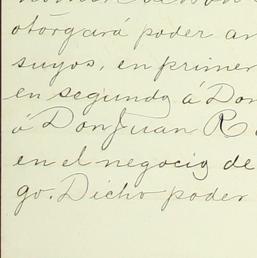 otorgará poder an
suyos, en primer
en segundo á Don
á Don Juan R
en el negocio de
go. Dicho poder